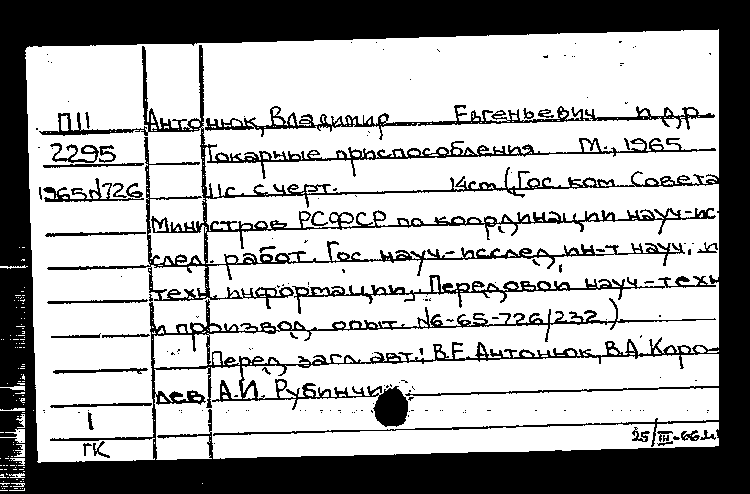 П11 Антонюк, Владимир Евгеньевич и др.
2295 Токарные приспособления. М., 1965
1965N726 11с. с черт. 14см (Гос. ком. Совета
Министров РСФСР по координации науч-ис-
след. работ. Гос. науч.-исслед. ин-т науч. и
техн. информации. Передовой науч.-техн
и производ. опыт. N6-65-726/232.)
Перед загл. авт.: В.Е. Антонюк, В.А. Коро-
лев, А.И. Рубинчик
1
ГК 25/III-66